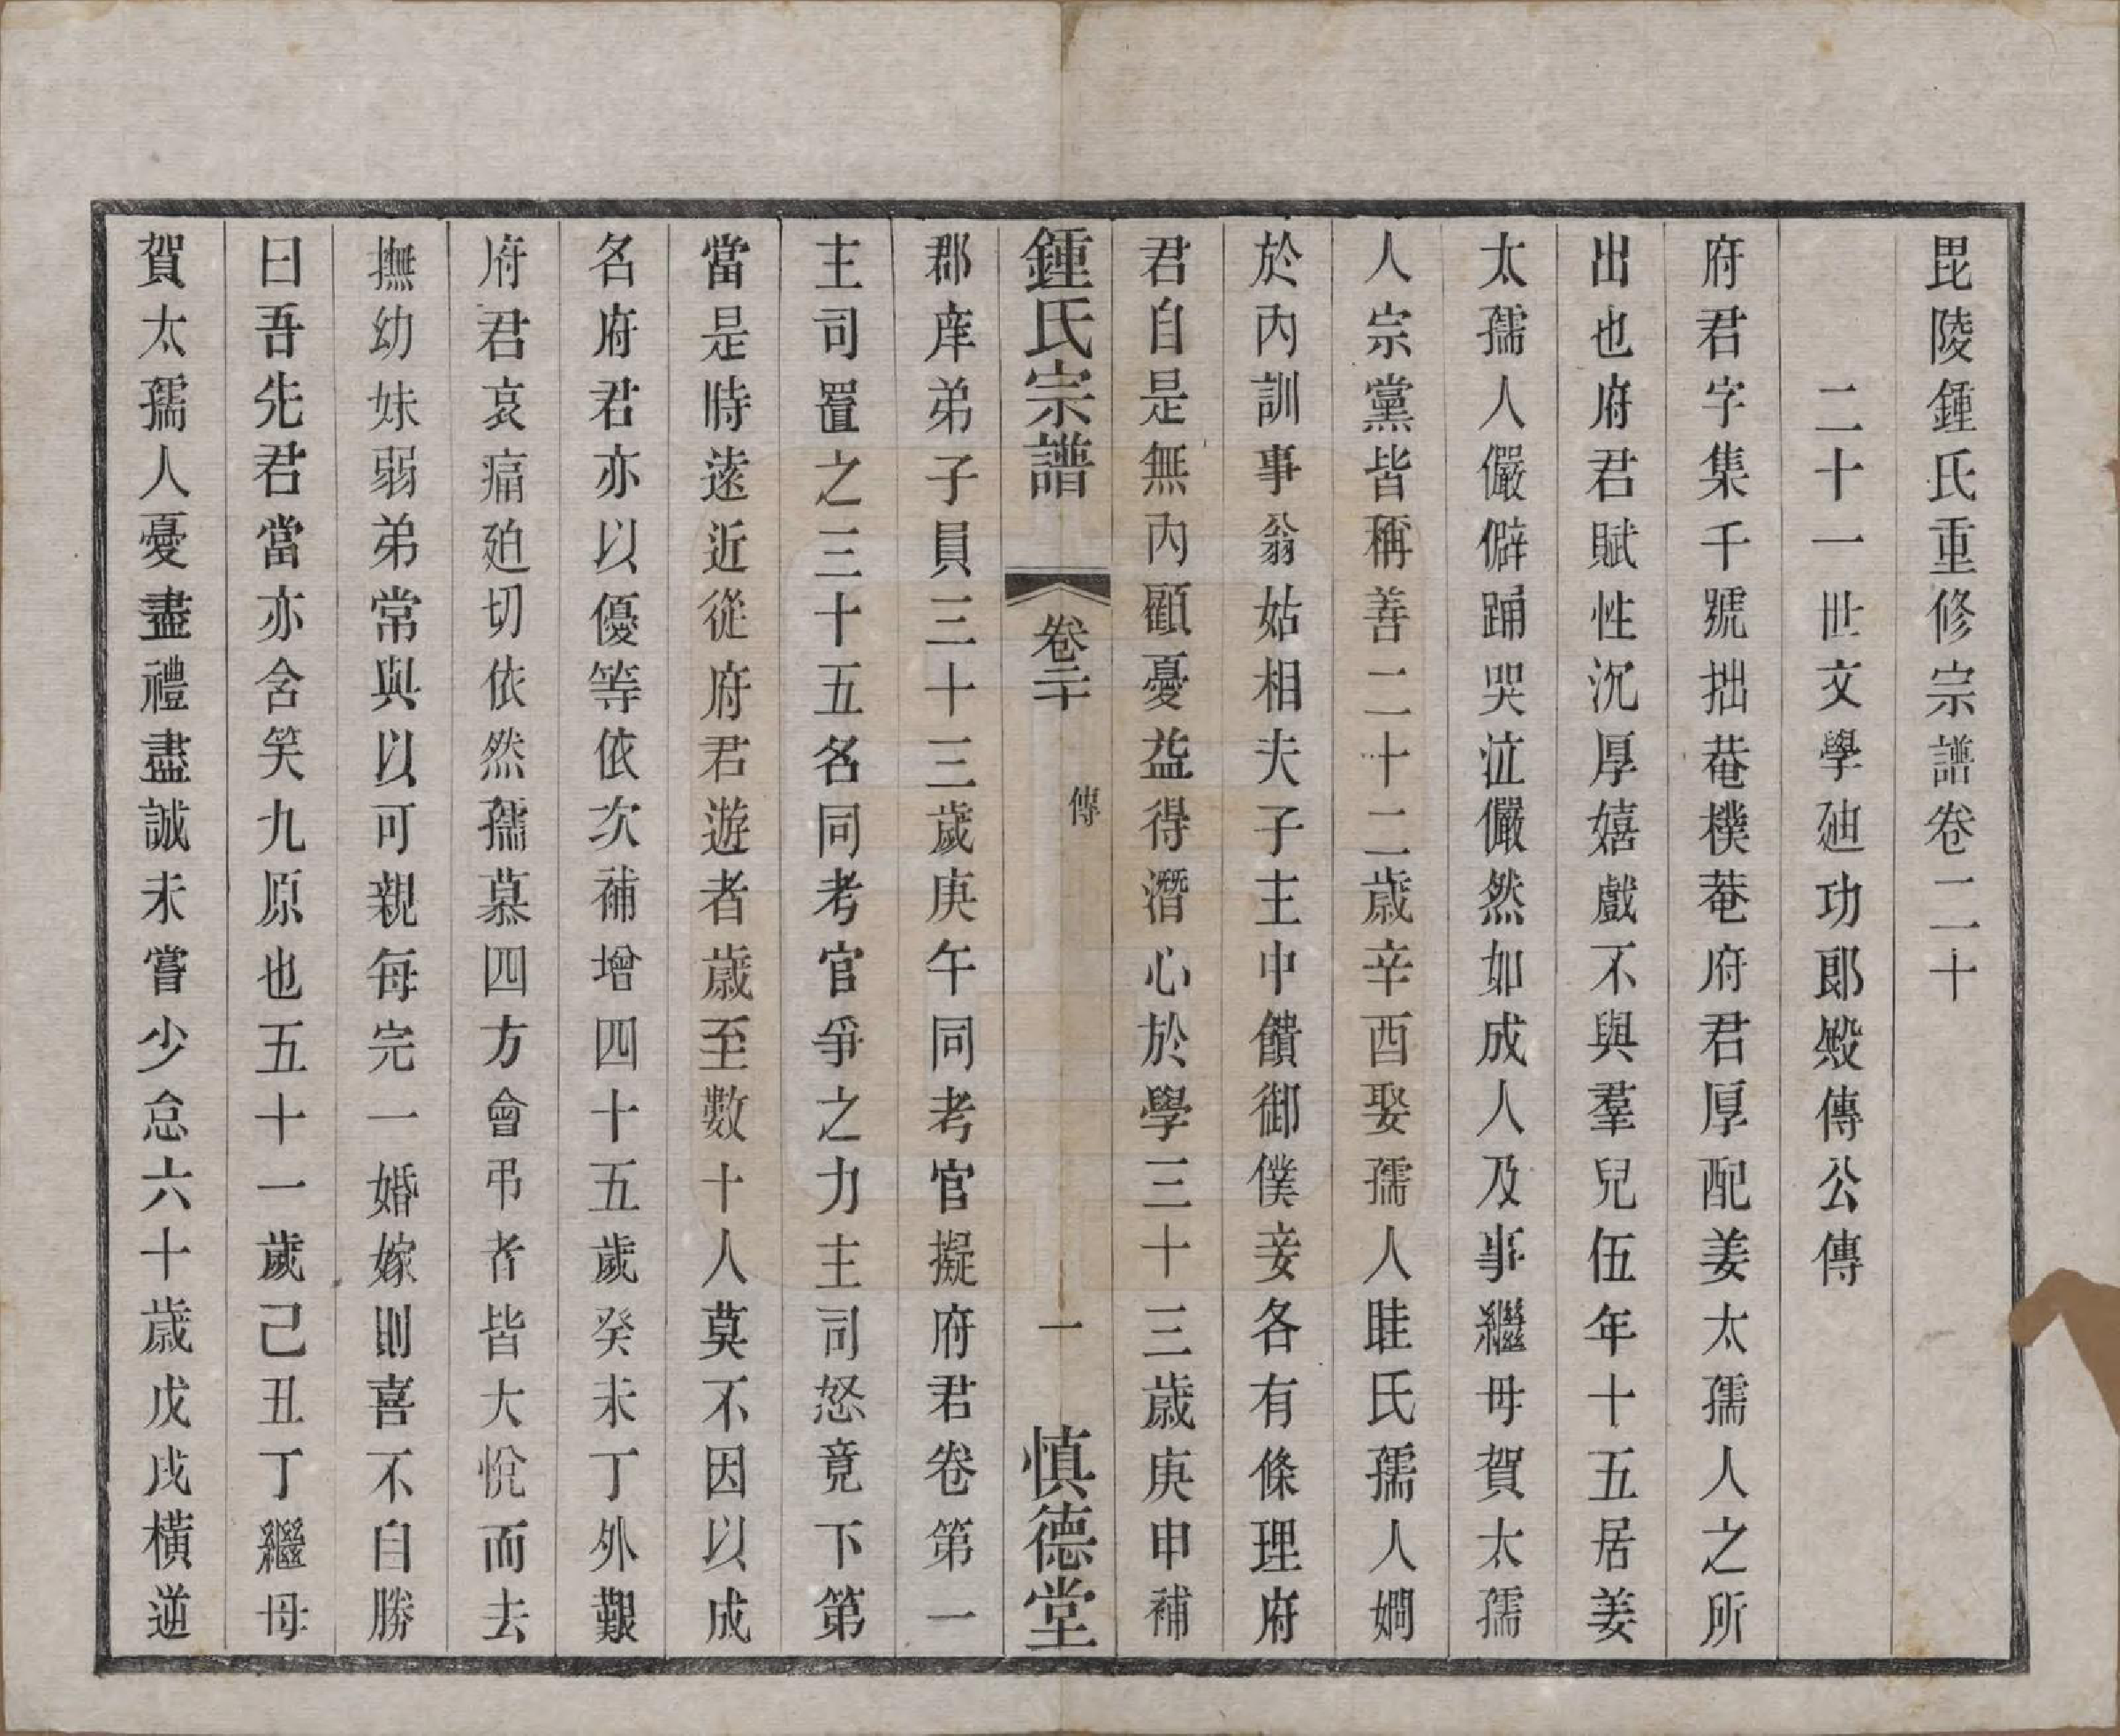 毘陵鍾氏重修宗譜卷二十
二十一世文學廸功郎㷫傳公傳
府君字集千號拙菴樸菴府君厚配姜太孺人之所
出也府君賦性沉厚嬉戲不與羣兒伍年十五居姜
太孺人儼僻踊哭泣儼然如成人及事繼母賀太孺
人宗黨皆稱善二十二歲辛酉娶孺人眭氏孺人嫻
於內訓事翁姑相夫子主中饋御僕妾各有條理府
君自是無內顧憂益得潛心於學三十三歲庚申補
鍾氏宗譜 卷二十 傳 一 慎德堂
郡庠弟子員三十三歲庚午同考官擬府君卷第一
主司置之三十五名同考官爭之力主司怒竟下第
當是時遠近從府君遊者歲至數十人莫不因以成
名府君亦以優等依次補增四十五歲癸未丁外艱
府君哀痛廹切依然孺慕四方會弔者皆大悅而去
撫幼妹弱弟常與以可親每完一婚嫁則喜不自勝
曰吾先君當亦含笑九原也五十一歲己丑丁繼母
賀太孺人憂盡禮盡誠未嘗少怠六十歲戊戌橫逆